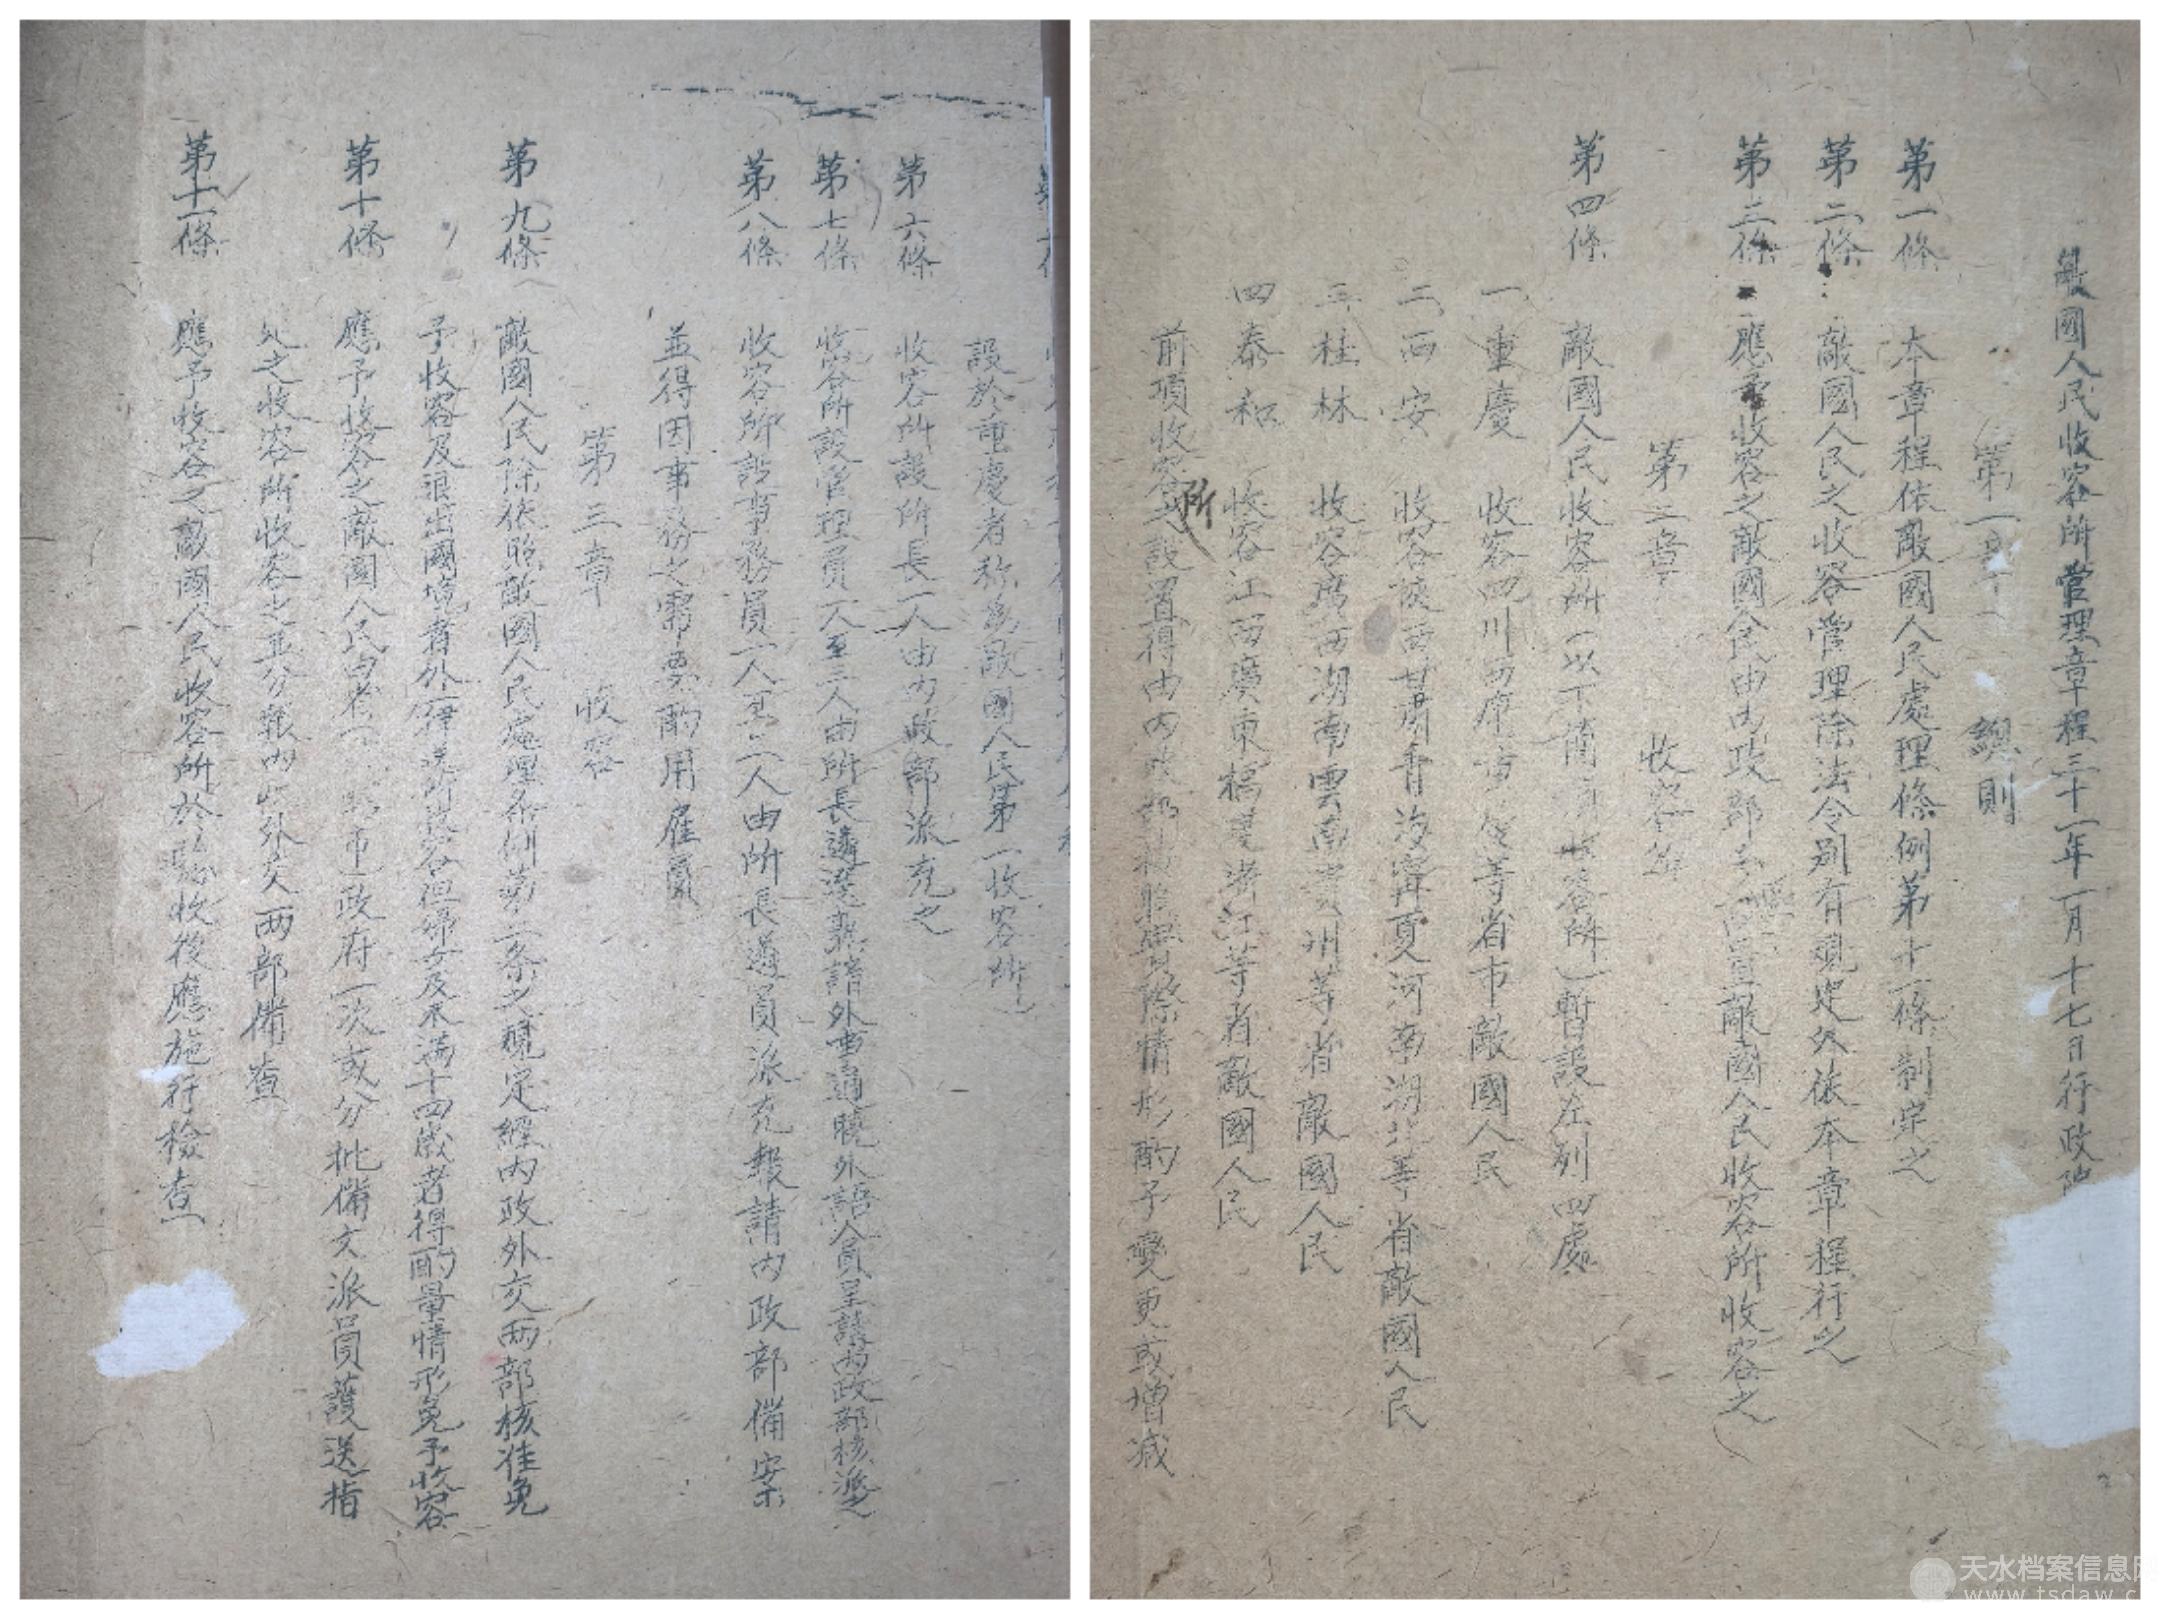 敵國人民收容所管理章程三十一年一月十七日行政院
第一章 總則
第一條 本章程依敵國人民處理條例第十一條制定之
第二條 敵國人民之收容管理除法令別有規定外依本章程行之
第三條 應予收容之敵國人民由內政部設置敵國人民收容所收容之
第二章 收容所
第四條 敵國人民收容所(以下簡稱收容所)暫設左列四處
一 重慶 收容四川西康重慶等省市敵國人民
二 西安 收容陝西甘肅青海寧夏河南湖北等省敵國人民
三 桂林 收容廣西湖南雲南貴州等省敵國人民
四 泰和 收容江西廣東福建浙江等省敵國人民
前項收容所之設置得由內政部按照實際情形酌予變更或增減
設於重慶者称為敵國人民第一收容所)
第六條 收容所設所長一人由內政部派充之
第七條 收容所設管理員一人至三人由所長遴選報請外事通曉外語人員呈請內政部核派之
第八條 收容所設事務員一人至二人由所長遴員派充報請內政部備案
並得因事務之需要酌用雇員
第三章 收容
第九條 敵國人民除依照敵國人民處理条例第二条之規定經內政外交兩部核准免
予收容及退出國境者外一律送所收容但婦女及未滿十四歲者得酌量情形免予收容
第十條 應予收容之敵國人民由省 市政府一次或分批備文派員護送指
定之收容所收容之並分報內政外交兩部備查
第十一條 應予收容之敵國人民收容所於驗收後應施行檢查
天水档案信息网
www.tsdaw.c